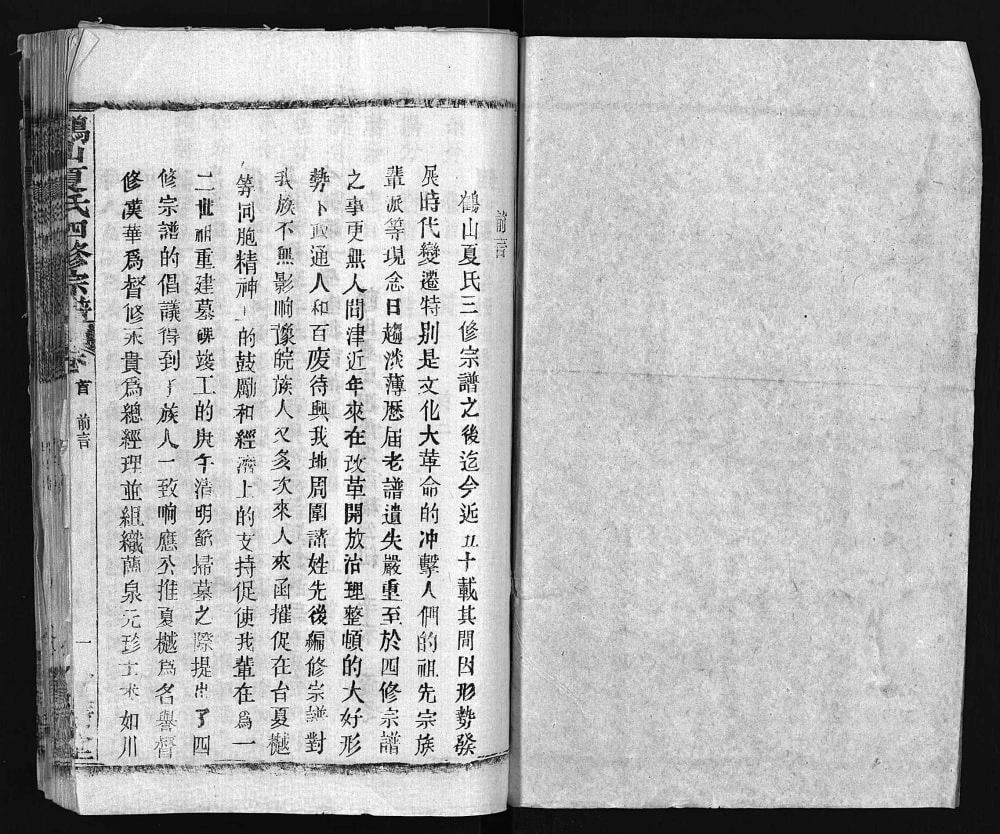 前言
鶴山夏氏三修宗譜之後迄今近五十載其間因形勢發
展時代變遷特別是文化大革命的冲擊人們的祖先宗族
輩派等現念日趨淡薄歷届老譜遺失嚴重至於四修宗譜
之事更無人問津近年來在改革開放治理整頓的大好形
勢下政通人和百廢待興我地周圍諸姓先後編修宗譜對
我族不無影响豫皖族人又多次來人來函摧促在台夏樾
等同胞精神上的鼓勵和經濟上的支持促使我輩在爲一
二世祖重建墓碑竣工的庚午清明節掃墓之際提出了四
修宗譜的倡議得到了族人一致响應公推夏樾爲名譽督
修漢華爲督修永貴爲總經理並組織蘭泉元珍玉來如川
鶴山夏氏四修宗譜
卷首
前言
一